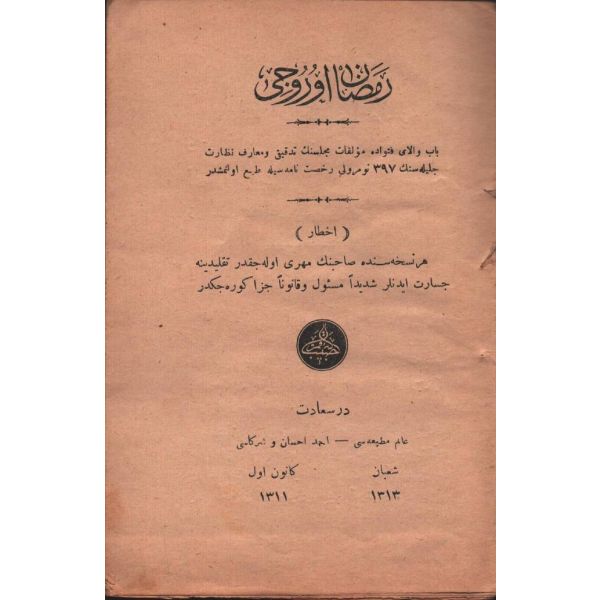 رمضان اوروجی
باب والای فتواده مؤلفات مجلسنك تدقیق ومعارف نظارت
جلیله‌سنك ٣٩٧ نومرولی رخصت نامه‌سیله طبع اولنمشدر
( اخطار )
هر نسخه‌سنده صاحبنك مهری اوله‌جقدر تقلیدینه
جسارت ایدنلر شدیداً مسئول وقانوناً جزا كوره‌جكدر
درسعادت
عالم مطبعه‌سی — احمد احسان و شركاسی
شعبان كانون اول
١٣١٣ ١٣١١